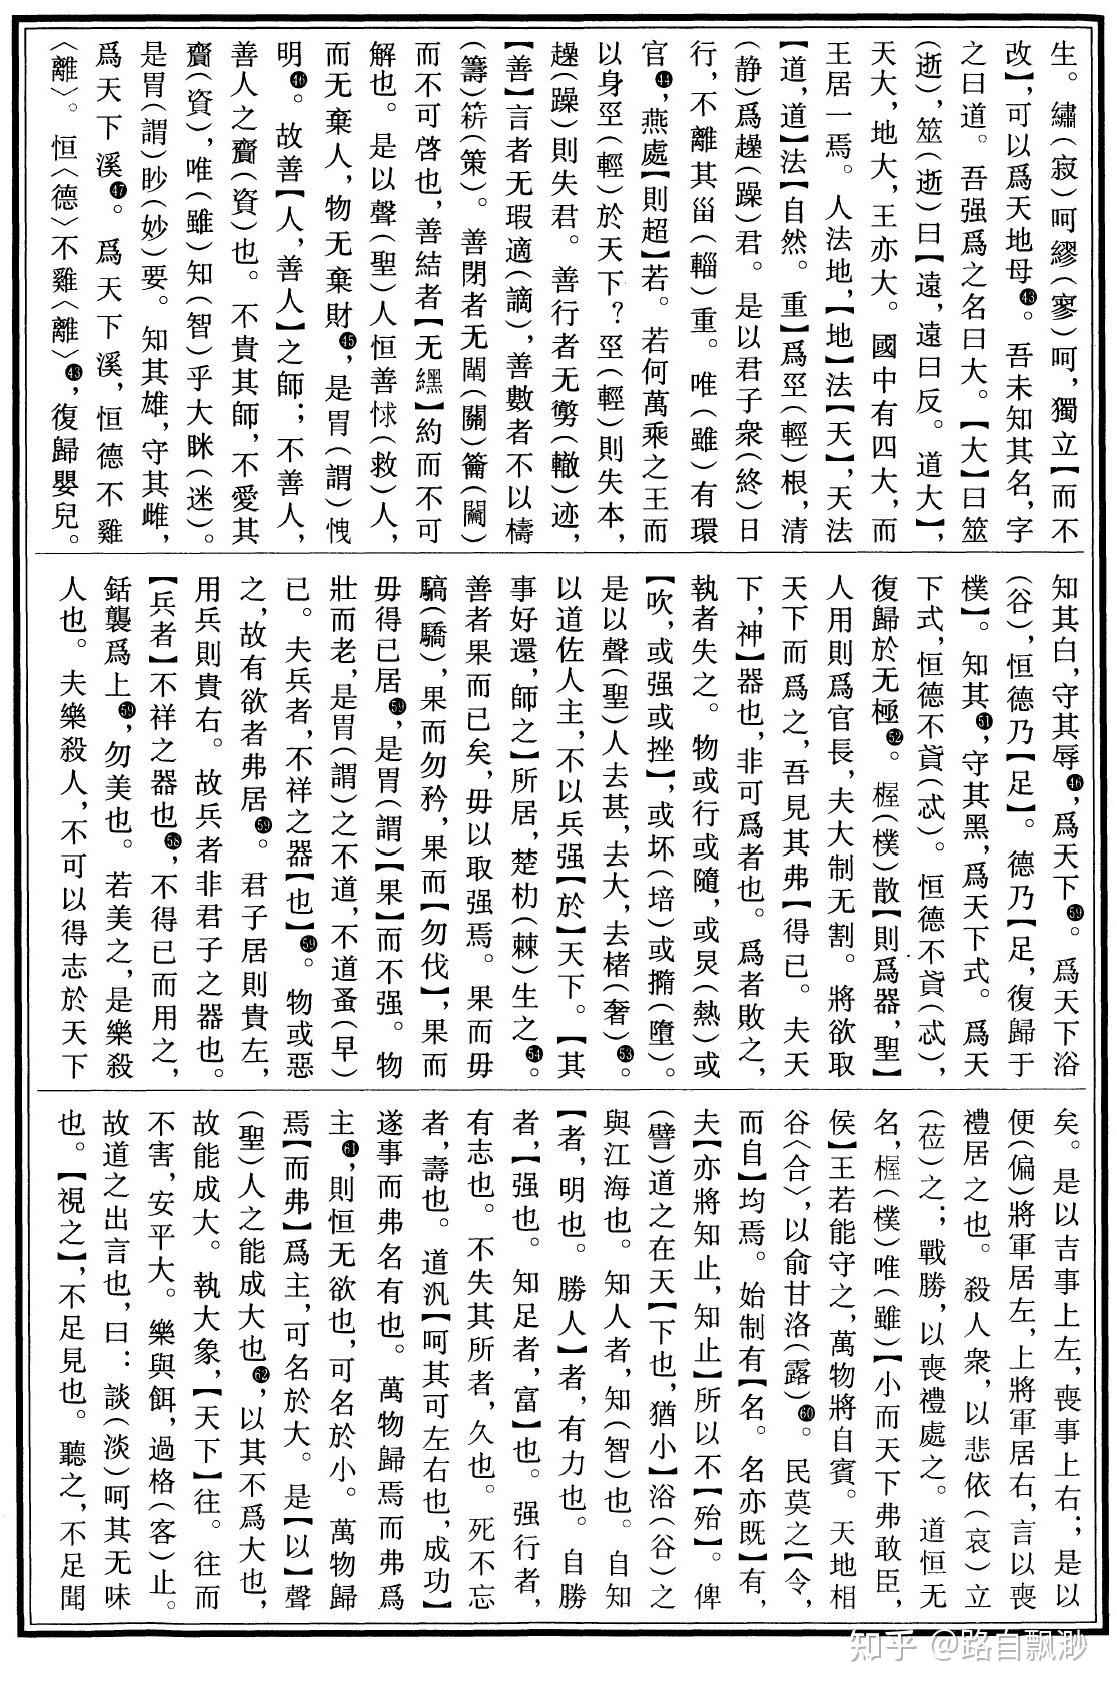 生。繡(寂)呵繆(寥)呵，獨立【而不
改】，可以爲天地母㊸。吾未知其名，字
之曰道。吾强爲之名曰大。【大】曰筮
(逝)，筮(逝)曰【遠，遠曰反。道大】，
天大，地大，王亦大。國中有四大，而
王居一焉。人法地，【地】法【天】，天法
【道，道】法【自然。重】爲巠(輕)根，清
(静)爲趮(躁)君。是以君子衆(終)日
行，不離其甾(輜)重。唯(雖)有環
官㊹，燕處【則超】若。若何萬乘之王而
以身巠(輕)於天下？巠(輕)則失本，
趮(躁)則失君。善行者无勶(轍)迹，
【善】言者无瑕適(謫)，善數者不以檮
(籌)䇢(策)。善閉者无𨵿(關)籥(闑)
而不可啓也，善結者【无纆】約而不可
解也。是以聲(聖)人恒善㤹(救)人，
而无棄人，物无棄財㊺，是胃(謂)愧
明㊻。故善【人，善人】之師；不善人，
善人之齎(資)也。不貴其師，不愛其
齎(資)，唯(雖)知(智)乎大眯(迷)。
是胃(謂)眇(妙)要。知其雄，守其雌，
爲天下溪㊼。爲天下溪，恒德不雞
〈離〉。恒〈德〉不雞〈離〉㊸，復歸嬰兒。
知其白，守其辱㊻，爲天下㊾。爲天下浴
(谷)，恒德乃【足】。德乃【足，復歸于
樸】。知其�51，守其黑，爲天下式。爲天
下式，恒德不貣(忒)。恒德不貣(忒)，
復歸於无極52。楃(樸)散【則爲器，聖】
人用則爲官長，夫大制无割。將欲取
天下而爲之，吾見其弗【得已。夫天
下，神】器也，非可爲者也。爲者敗之，
執者失之。物或行或隨，或炅(熱)或
【吹，或强或挫】，或坏(培)或撱(墮)。
是以聲(聖)人去甚，去大，去楮(奢)53。
以道佐人主，不以兵强【於】天下。【其
事好還，師之】所居，楚朸(棘)生之54。
善者果而已矣，毋以取强焉。果而毋
驕(驕)，果而勿矜，果而【勿伐】，果而
毋得已居59，是胃(謂)【果】而不强。物
壯而老，是胃(謂)之不道，不道蚤(早)
已。夫兵者，不祥之器【也】59。物或惡
之，故有欲者弗居59。君子居則貴左，
用兵則貴右。故兵者非君子之器也。
【兵者】不祥之器也58，不得已而用之，
銛襲爲上59，勿美也。若美之，是樂殺
人也。夫樂殺人，不可以得志於天下
矣。是以吉事上左，喪事上右；是以
便(偏)將軍居左，上將軍居右，言以喪
禮居之也。殺人衆，以悲依(哀)立
(莅)之；戰勝，以喪禮處之。道恒无
名，楃(樸)唯(雖)【小而天下弗敢臣，
侯】王若能守之，萬物將自賓。天地相
谷〈合〉，以俞甘洛(露)60。民莫之【令，
而自】均焉。始制有【名。名亦既】有，
夫【亦將知止，知止】所以不【殆】。俾
(譬)道之在天【下也，猶小】浴(谷)之
與江海也。知人者，知(智)也。自知
【者，明也。勝人】者，有力也。自勝
者，【强也。知足者，富】也。强行者，
有志也。不失其所者，久也。死不忘
者，壽也。道汎【呵其可左右也，成功】
遂事而弗名有也。萬物歸焉而弗爲
主61，則恒无欲也，可名於小。萬物歸
焉【而弗】爲主，可名於大。是【以】聲
(聖)人之能成大也62，以其不爲大也，
故能成大。執大象，【天下】往。往而
不害，安平大。樂與餌，過格(客)止。
故道之出言也，曰：談(淡)呵其无味
也。【視之】，不足見也。聽之，不足聞
知乎 @路自飘渺